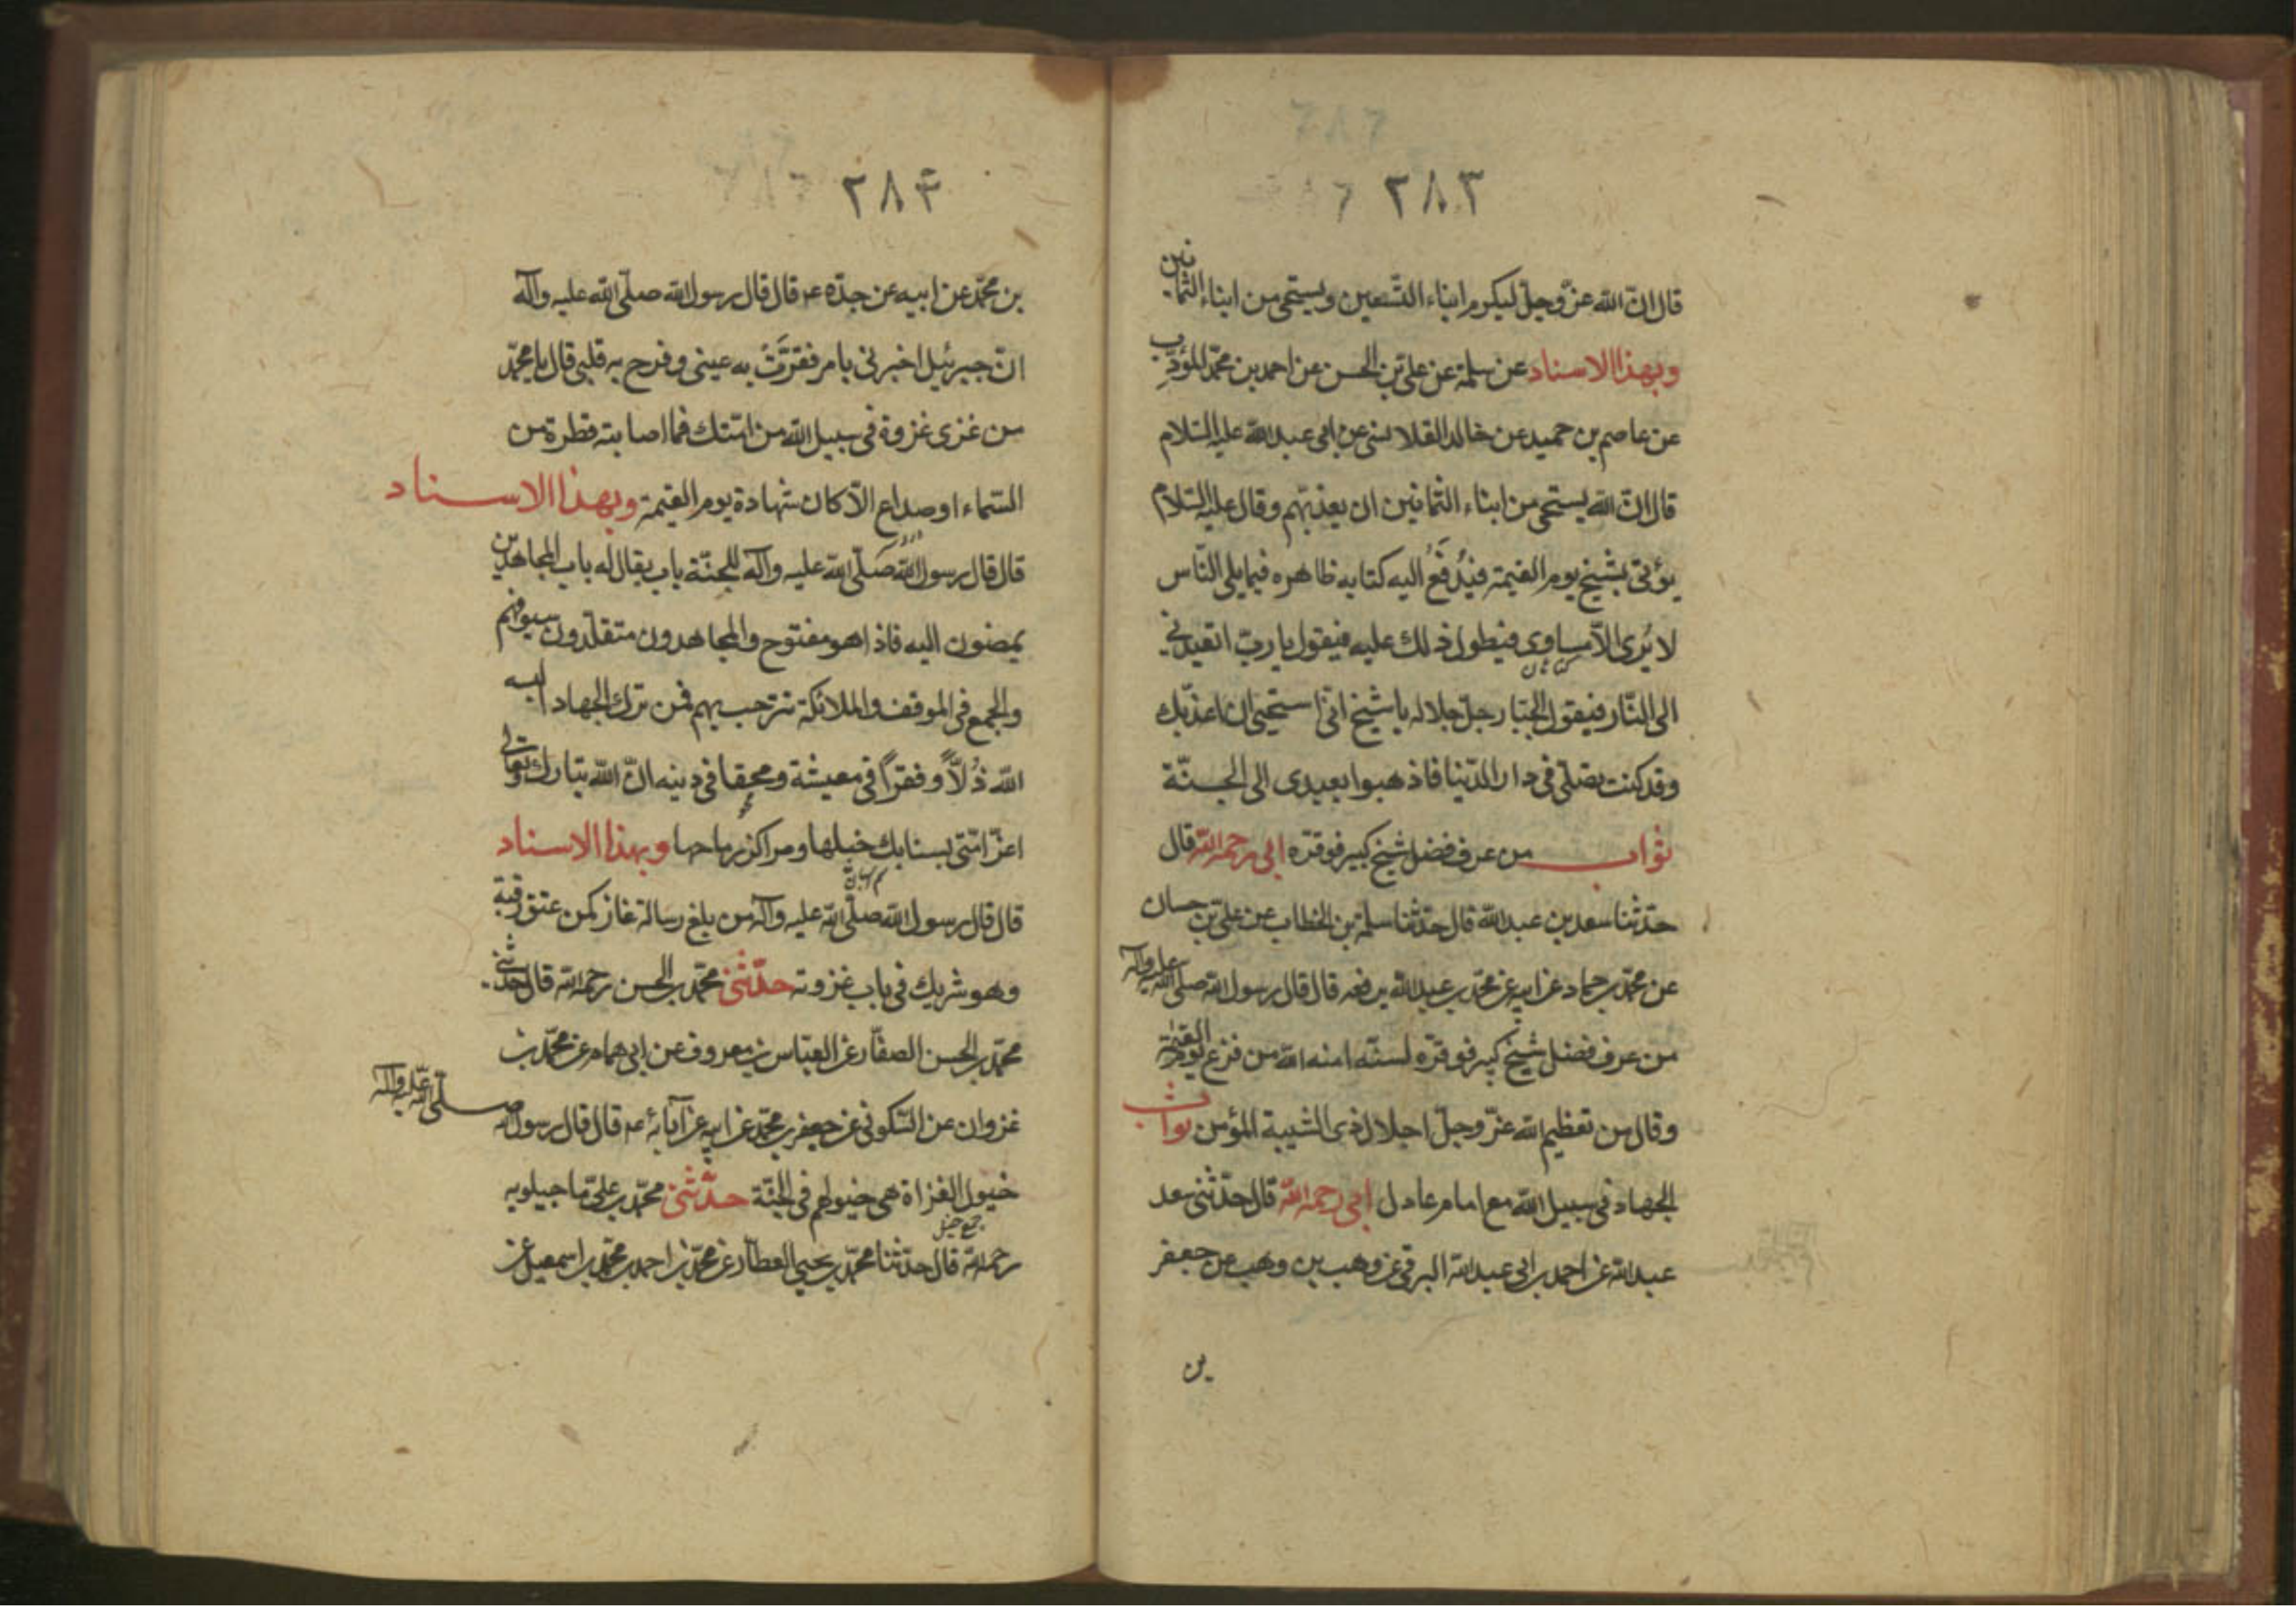 ٢٨٣
قال ان الله عزّ وجلّ ليكرم ابناء التسعين ويستحى من ابناء الثمانين
وبهذا الاسناد عن سلمة عن على بن الحسن عن احمد بن محمّد المؤدّب
عن عاصم بن حميد عن خالد القلانسى عن ابى عبد الله عليه السّلام
قال انّ الله يستحى من ابناء الثمانين ان يعذّبهم وقال عليه السّلام
يؤتى بشيخ يوم القيمة فيُدفَعُ اليه كتابه ظاهره فيما يلى النّاس
لا يُرى الّا مساوى فيطول ذلك عليه فيقول يا ربّ اتعيدنى
الى النّار فيقول الجبّار جلّ جلاله يا شيخ انّى استحيى ان اعذّبك
وقد كنت تصلّى فى دار الدّنيا فاذهبوا بعبدى الى الجنّة
ثواب من عرف فضل شيخ كبير فوقّره ابى رحمه الله قال
حدّثنا سعد بن عبد الله قال حدّثنا سلمة بن الخطاب عن على بن حسان
عن محمّد بن حماد عن ابيه عن محمّد بن عبد الله يرفعه قال قال رسول الله صلّى الله عليه وآله
من عرف فضل شيخ كبير فوقّره لسنّه امنه الله من فزع يوم القيمة
وقال من تعظيم الله عزّ وجلّ اجلال ذى الشيبة المؤمن ثواب
الجهاد فى سبيل الله مع امام عادل ابى رحمه الله قال حدّثنى سعد
عبد الله عن احمد بن ابى عبد الله البرقى عن وهب بن وهب عن جعفر
بن
٢٨۴
بن محمّد عن ابيه عن جدّه عم قال قال رسول الله صلّى الله عليه وآله
انّ جبرئيل اخبرنى بامر فقرّت به عينى وفرح به قلبى قال يا محمّد
من غزى غزوة فى سبيل الله من امّتك فما اصابته قطرة من
السّماء او صداع الّا كان شهادة يوم القيمة وبهذا الاسناد
قال قال رسول الله صلّى الله عليه وآله للجنّة باب يقال له باب المجاهدين
يمضون اليه فاذا هو مفتوح والمجاهدون متقلّدون سيوفهم
والجمع فى الموقف والملائكة تترحب بهم فمن ترك الجهاد البسه
الله ذُلّاً وفقراً فى معيشة ومحقا فى دينه انّ الله تبارك وتعالى
اعزّ امّتى بسنابك خيلها ومراكز رماحها وبهذا الاسناد
قال قال رسول الله صلّى الله عليه وآله من بلغ رسالة غاز كمن عتق رقبة
وهو شريك فى باب غزوته حدّثنى محمّد بن الحسن رحمه الله قال حدثنى
محمّد بن الحسن الصفّار عن العبّاس بن معروف عن ابى همام عن محمّد بن
غزوان عن السّكونى عن جعفر بن محمّد عن ابيه عن آبائه عم قال قال رسول الله صلّى الله عليه وآله
خيول الغزاة هى خيولهم فى الجنّة حدّثنى محمّد بن علىّ ماجيلويه
جمع خيل
رحمه الله قال حدّثنا محمّد بن يحيى العطّار عن محمّد بن احمد بن محمّد بن اسمعيل عن